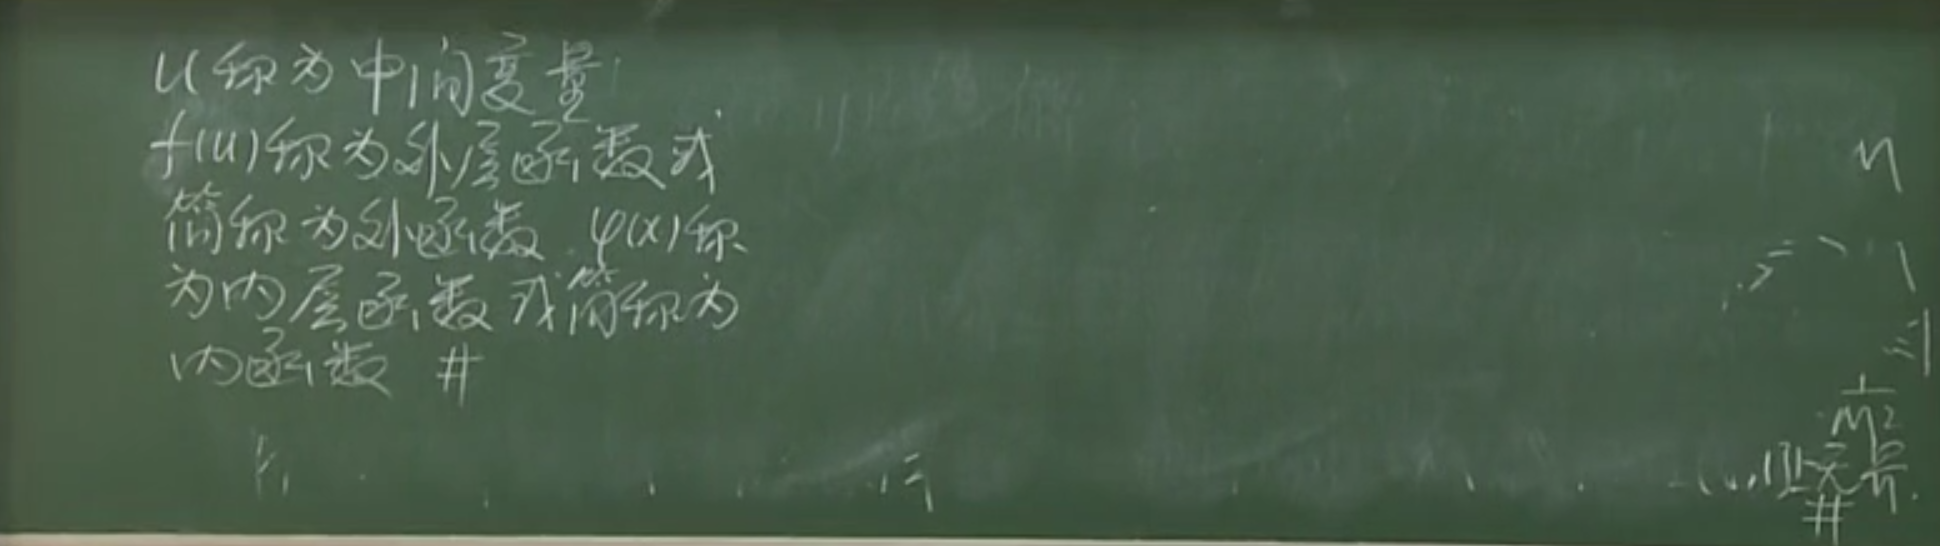 u称为中间变量
f(u)称为外层函数或
简称为外函数 φ(x)称
为内层函数或简称为
内函数 #
n
#